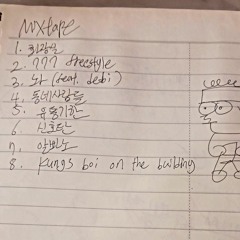 Mixtape
1. 회장님
2. 777 freestyle
3. 놔 (feat. debi)
4. 동네사람들
5. 유통기한
6. 신호탄
7.
8. Kungs boi on the building